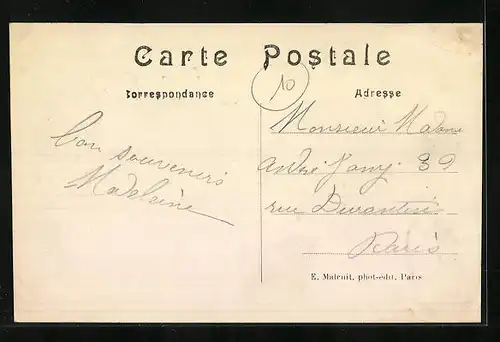 Carte Postale
Correspondance
Adresse
10
Bon souvenirs
Madelaine
Monsieur Madame
André 39
rue
Paris
E. Malcuit, phot-édit. Paris